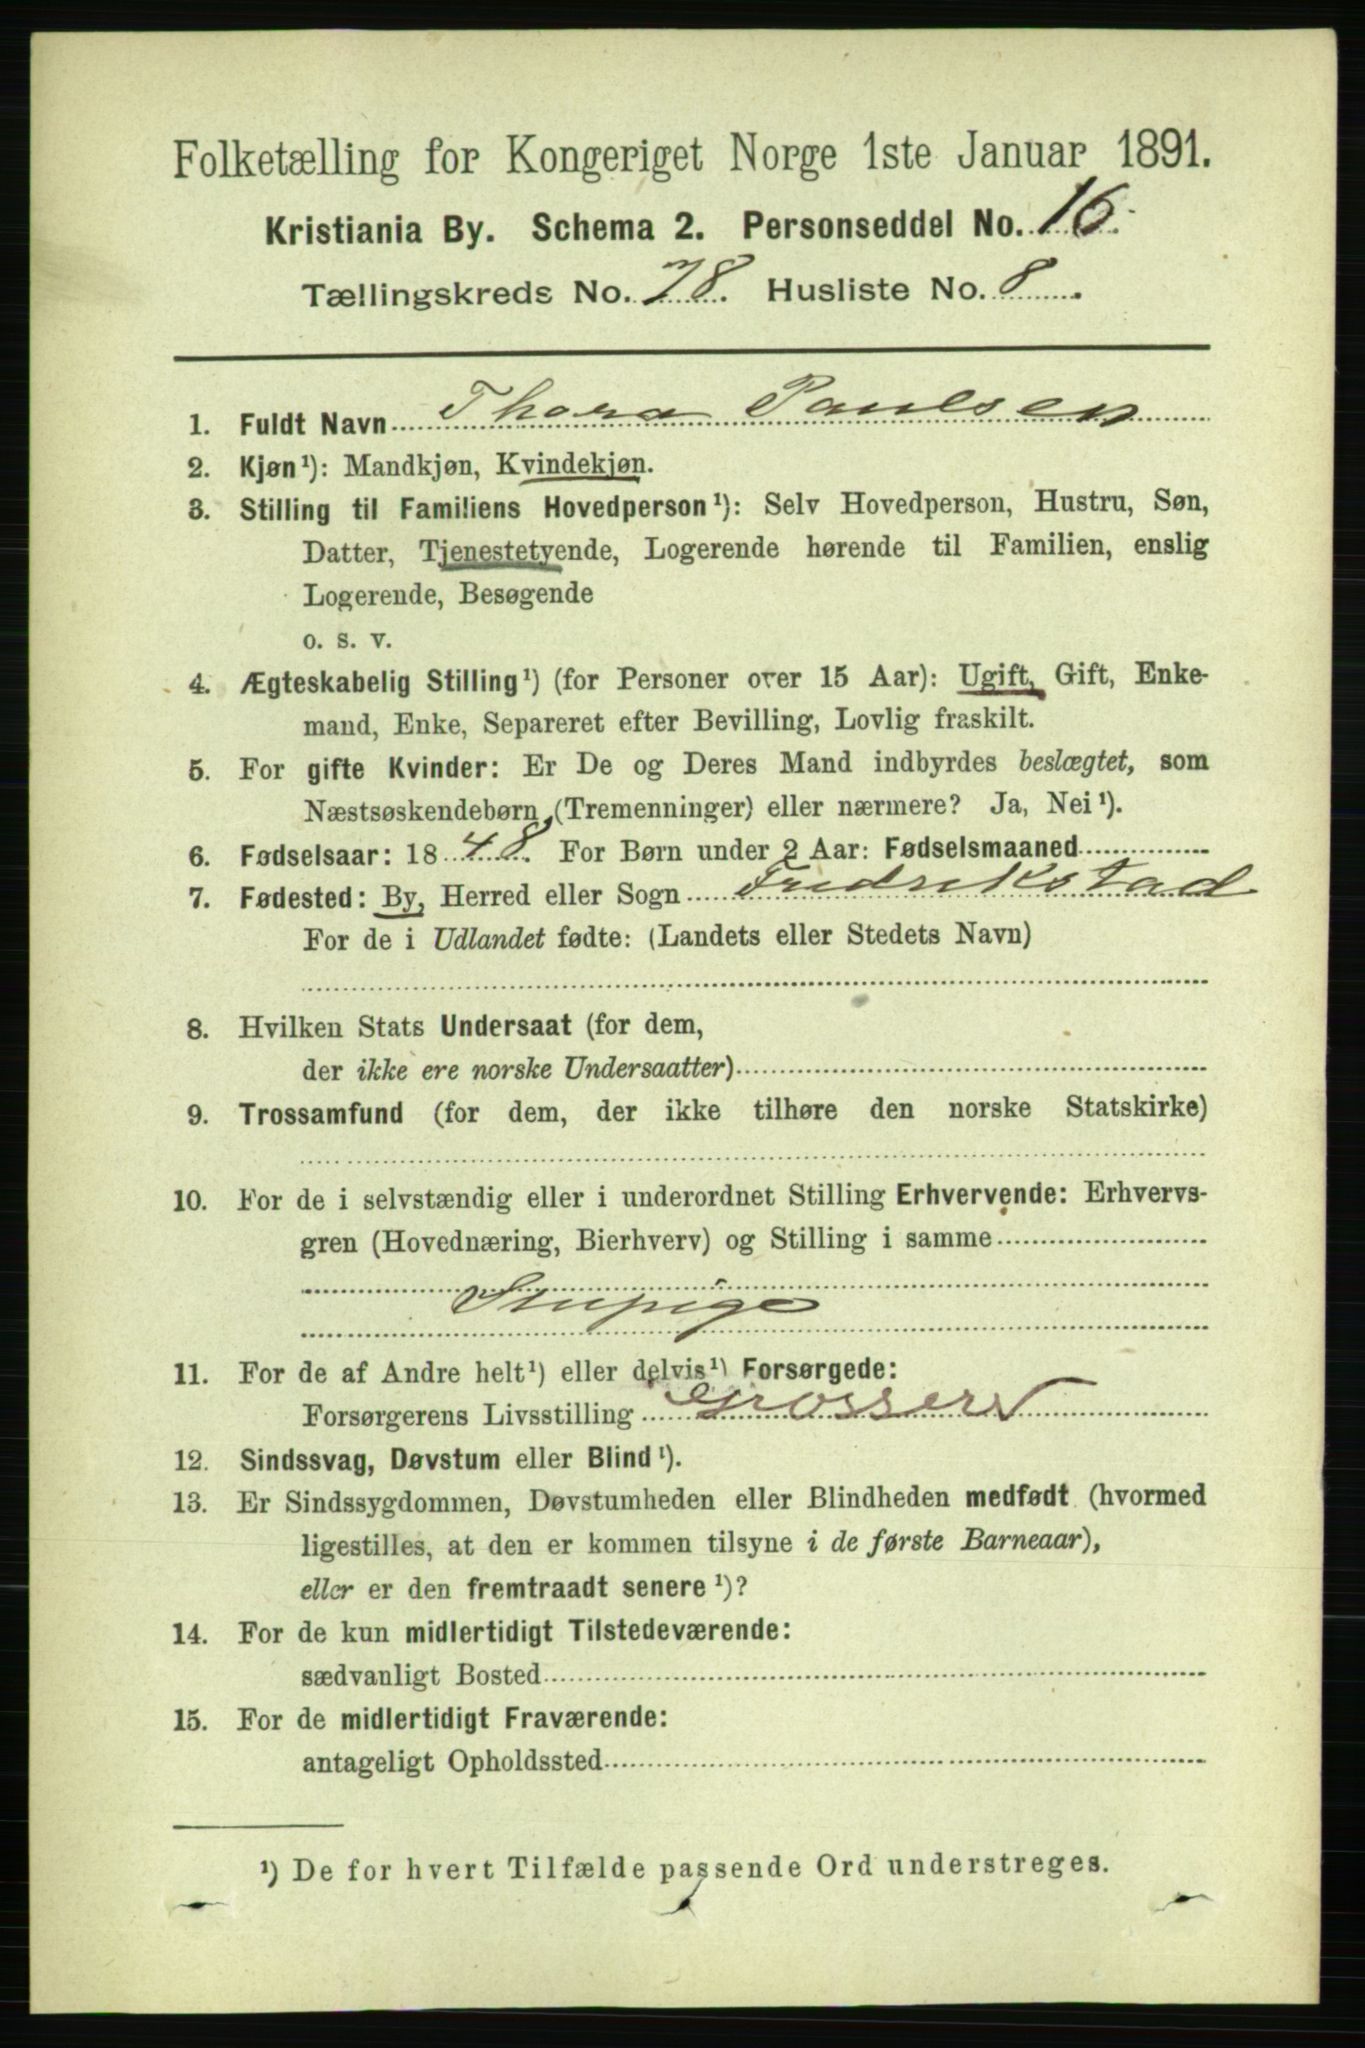 Folketælling for Kongeriget Norge 1ste Januar 1891.
Kristiania By. Schema 2. Personseddel No. 16.
Tællingskreds No. 78. Husliste No. 8.
1. Fuldt Navn Thora Paulsen
2. Kjøn¹): Mandkjøn, Kvindekjøn.
3. Stilling til Familiens Hovedperson¹): Selv Hovedperson, Hustru, Søn,
Datter, Tjenestetyende, Logerende hørende til Familien, enslig
Logerende, Besøgende
o. s. v.
4. Ægteskabelig Stilling¹) (for Personer over 15 Aar): Ugift, Gift, Enke-
mand, Enke, Separeret efter Bevilling, Lovlig fraskilt.
5. For gifte Kvinder: Er De og Deres Mand indbyrdes beslægtet, som
Næstsøskendebørn (Tremenninger) eller nærmere? Ja, Nei¹).
6. Fødselsaar: 1848. For Børn under 2 Aar: Fødselsmaaned
7. Fødested: By, Herred eller Sogn Fredrikstad
For de i Udlandet fødte: (Landets eller Stedets Navn)
8. Hvilken Stats Undersaat (for dem,
der ikke ere norske Undersaatter)
9. Trossamfund (for dem, der ikke tilhøre den norske Statskirke)
10. For de i selvstændig eller i underordnet Stilling Erhvervende: Erhvervs-
gren (Hovednæring, Bierhverv) og Stilling i samme
Stupige
11. For de af Andre helt¹) eller delvis¹) Forsørgede:
Forsørgerens Livsstilling Grosserer
12. Sindssvag, Døvstum eller Blind¹).
13. Er Sindssygdommen, Døvstumheden eller Blindheden medfødt (hvormed
ligestilles, at den er kommen tilsyne i de første Barneaar),
eller er den fremtraadt senere¹)?
14. For de kun midlertidigt Tilstedeværende:
sædvanligt Bosted
15. For de midlertidigt Fraværende:
antageligt Opholdssted
¹) De for hvert Tilfælde passende Ord understreges.